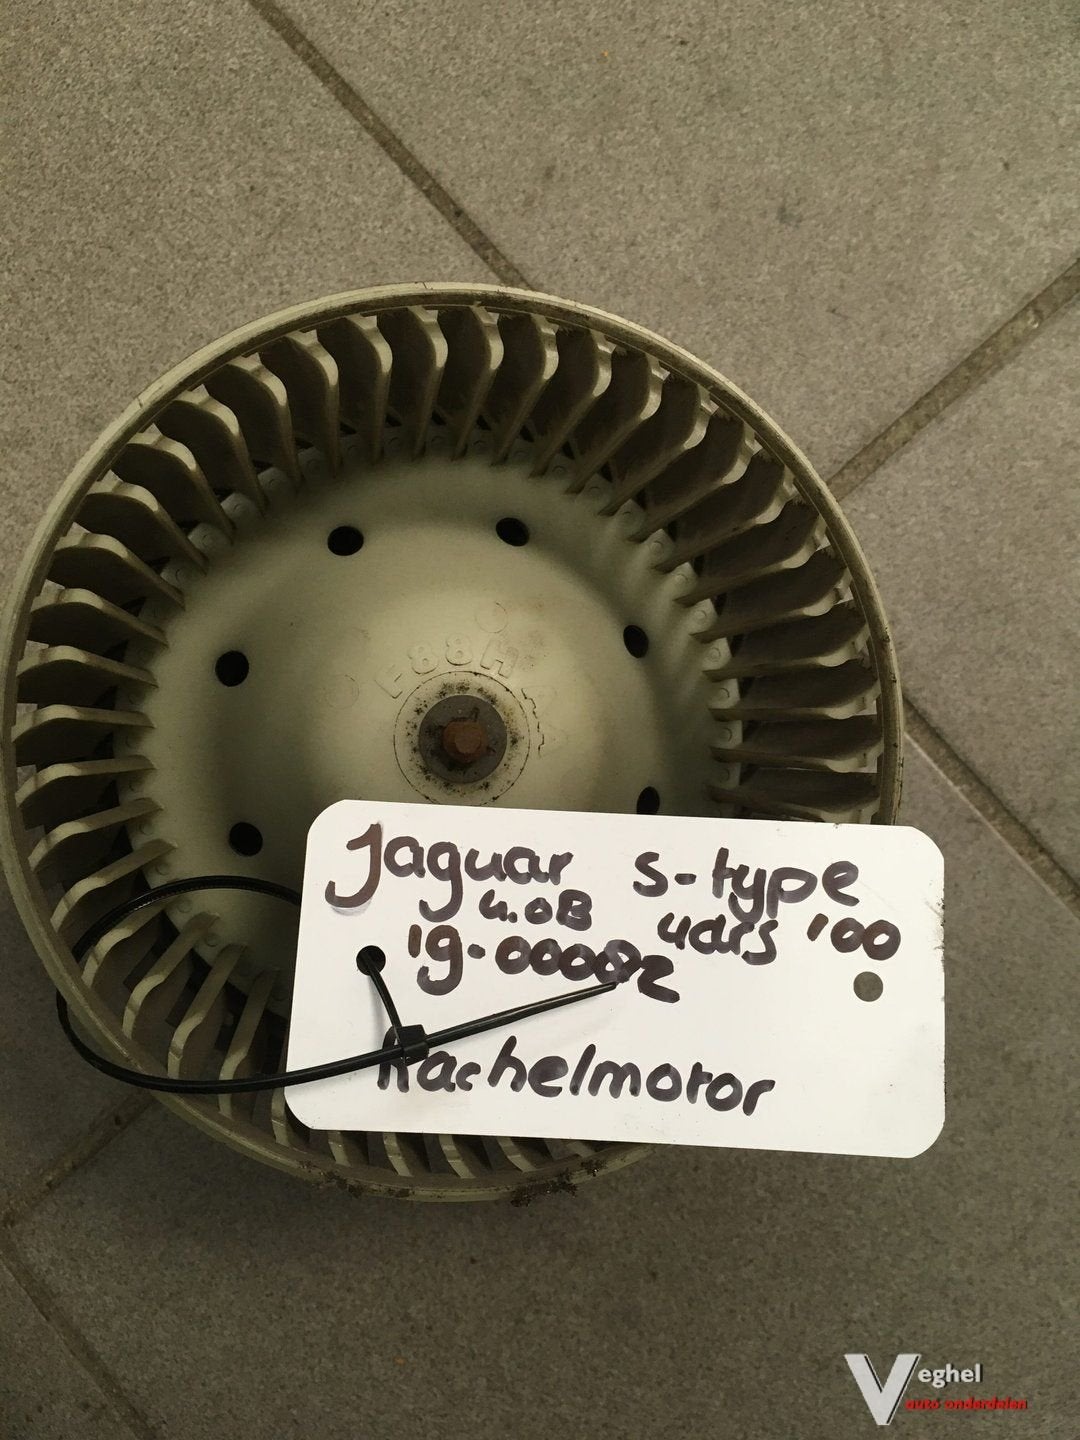 F-88H
Jaguar s-type
4.0B 4drs '00
19-000002
Kachelmotor
Veghel
auto onderdelen